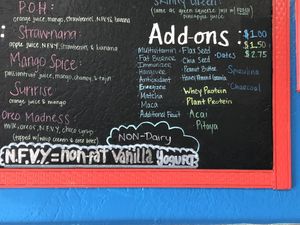 P.O.H:
orange juice, mango, strawberries, N.F.V.Y, & banana
Strawnana:
apple juice, N.F.V.Y, strawberries, & banana
Mango Spice:
passionfruit juice, mango, & cayenne
Sunrise
orange juice & mango
Oreo Madness
milk, oreos, N.F.V.Y, choco syrup
(topped w/ whip cream & oreo bites)
NON-Dairy
N.F.V.Y = non-fat vanilla yogurt
(same as green supreme just w/
pineapple juice
Add-ons:
$1.00
$1.50
$2.75
Multivitamin
Fat Burner
Immunity
Hangover
Antioxidant
Energizer
Matcha
Maca
Additional Fruit
Flax Seed
Chia Seed
Dates
Peanut Butter
Honey Almond Granola
Whey Protein
Plant Protein
Acai
Pitaya
Spirulina
Charcoal